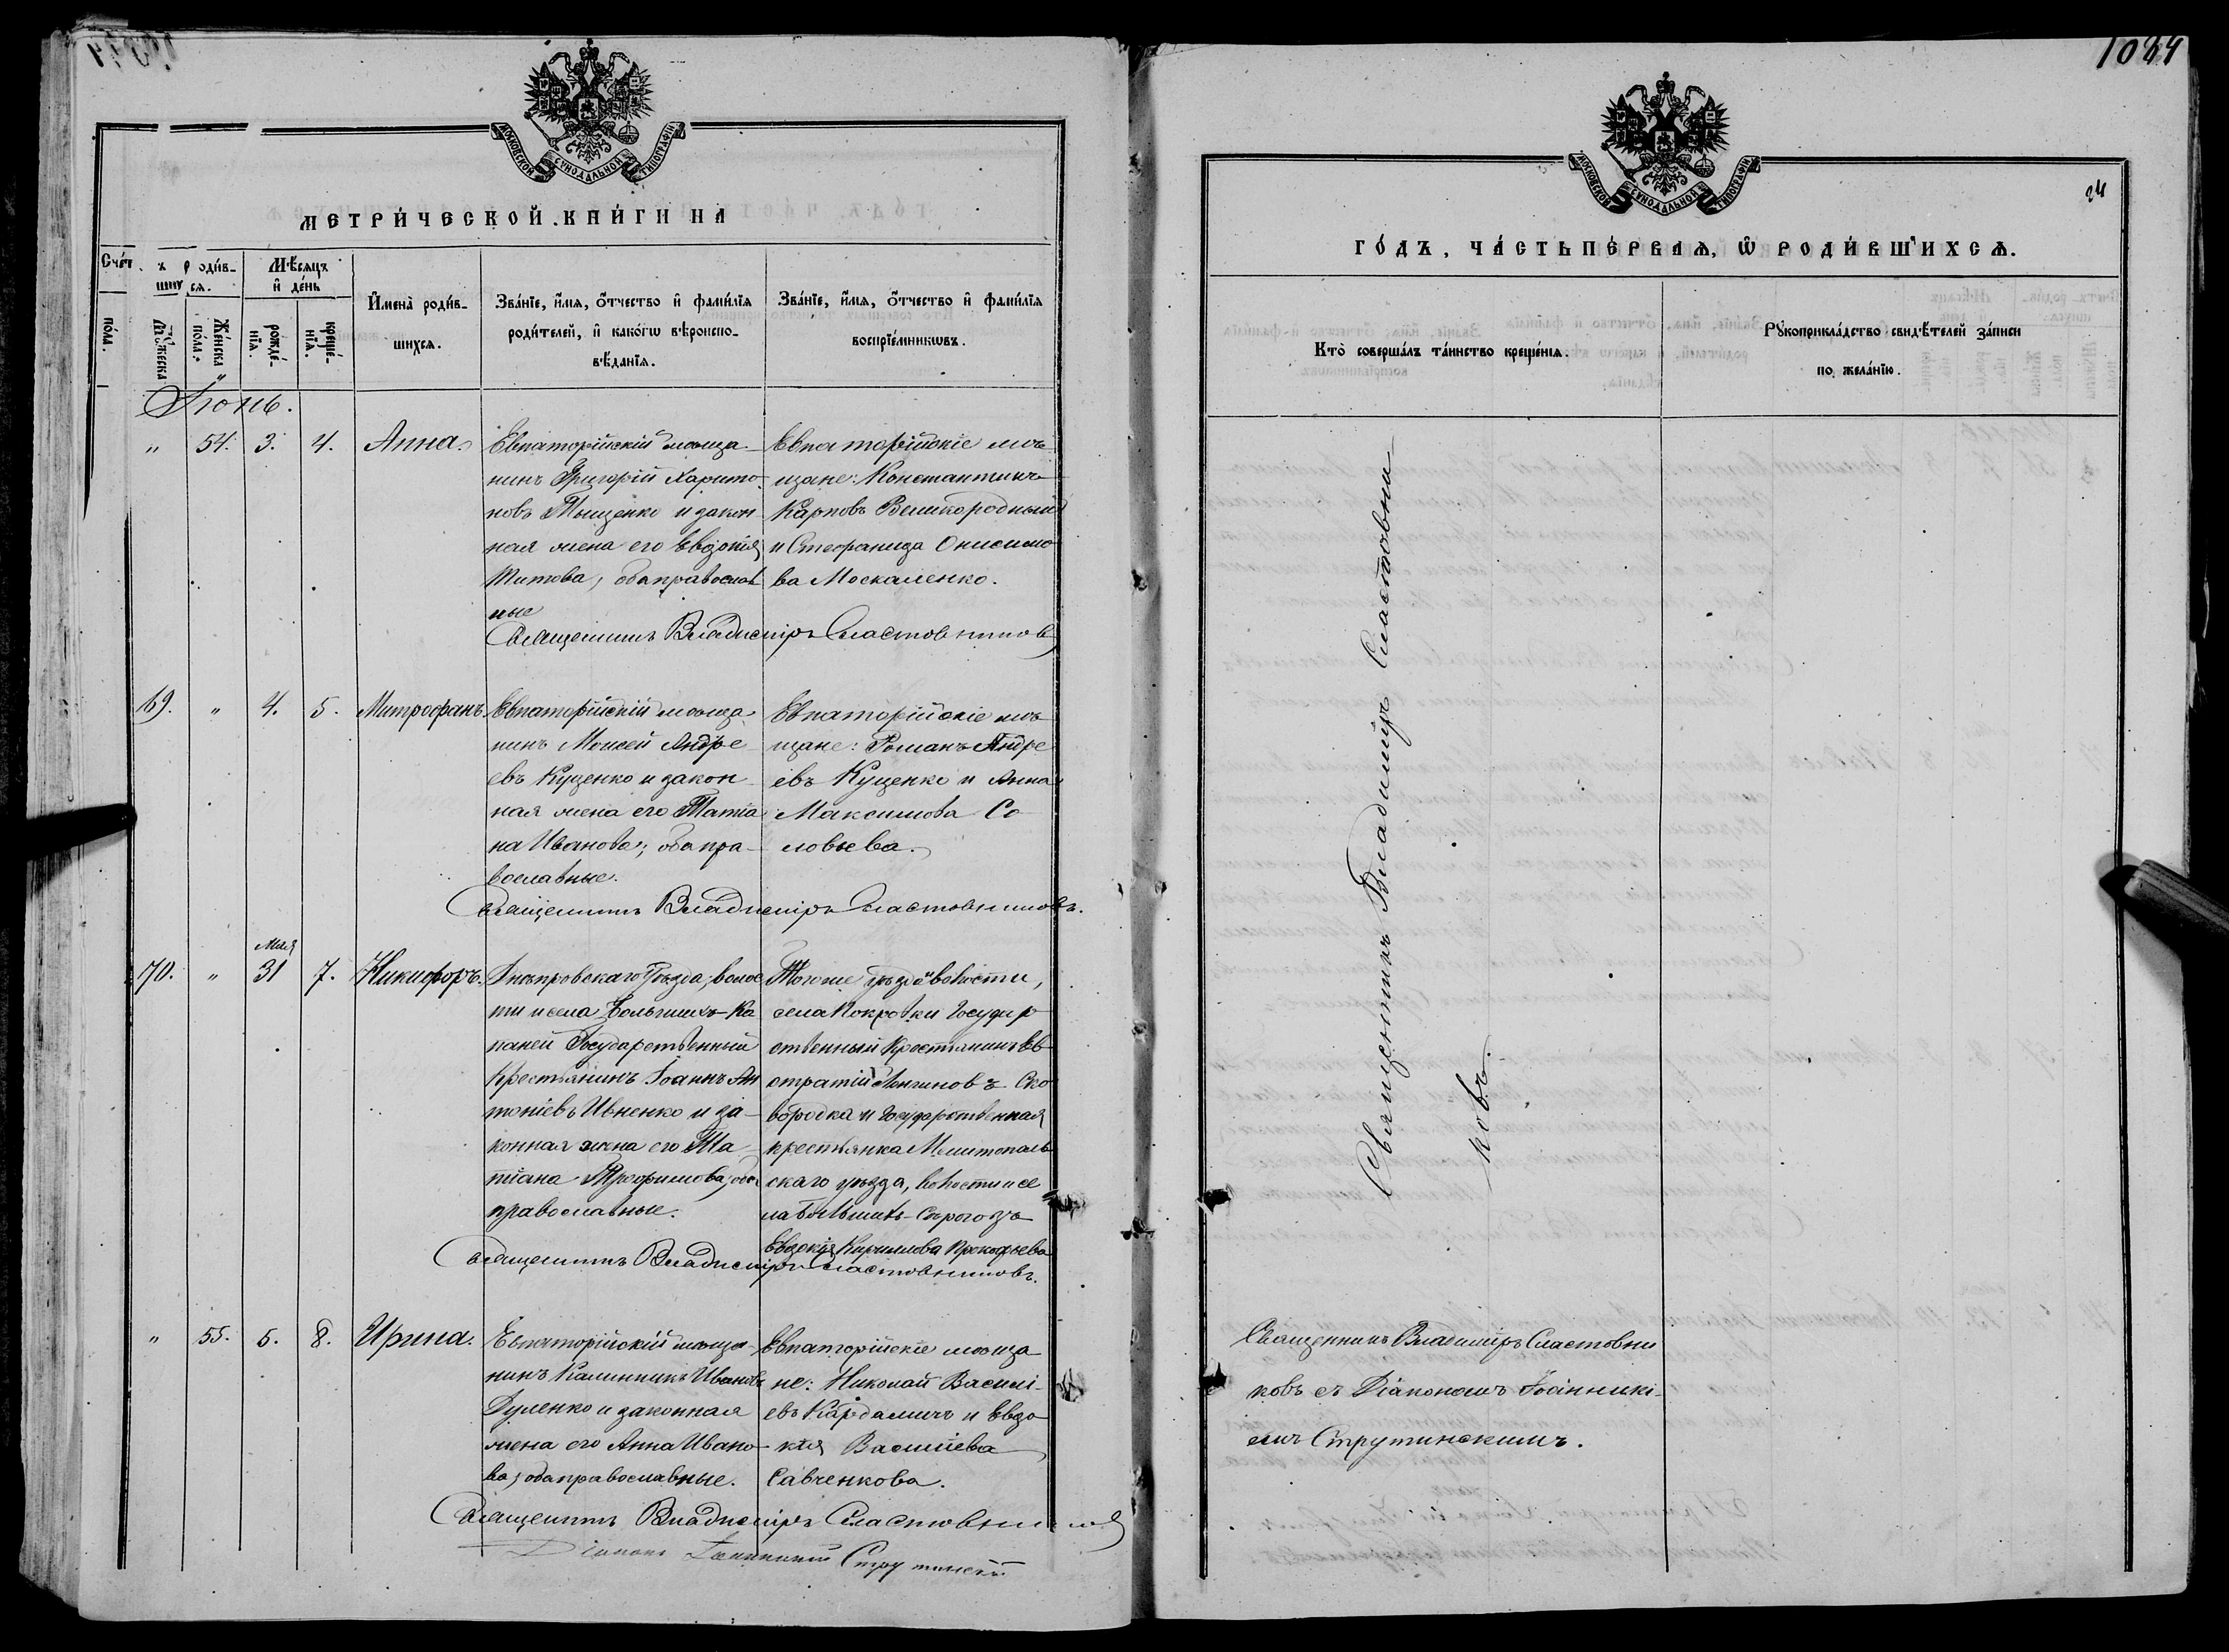 1084
МОСКОВСКОЙ СѴНОДАЛЬНОЙ ТИПОГРАФІИ
МЕТРИ́ЧЕСКОЙ КНИ́ГИ НА
Сче́т ъ роди́вшихся.
Мѣ́сяцъ и҆ де́нь
И҆мена̀ роди́в-
шихся.
Зва́нїе, и҆́мя, ѻ҆́тчество и҆ фами́лїя
роди́телей, и҆ како́гѡ вѣроиспо-
вѣ́данїя.
Зва́нїе, и҆́мя, ѻ҆́тчество и҆ фами́лїя
воспрїе́мникѡвъ.
по́ла.
Мꙋ́жеска
Же́нска по́ла.
рожде́-
нїя.
креще́-
нїя.
Іюнь.
" 54. 3. 4. Анна.
Евпаторійскій мѣща-
нинъ Григорій Харито-
новъ Тыщенко и закон
ная жена его Евдокія
Титова, оба православ
ные
Евпаторійскіе мѣ
щане: Константинъ
Карповъ Великородный
и Стефанида Онисимо
ва Москаленко.
Священникъ Владиміръ Сластовников
69. " 4. 5. Митрофанъ.
Евпаторійскій мѣща
нинъ Моисей Андре
евъ Куценко и закон
ная жена его Татіа
на Иванова; оба пра-
вославные.
Евпаторійскіе мѣ
щане: Романъ Андре
евъ Куценко и Анна
Максимова Со
ловьева.
Священникъ Владиміръ Сластовниковъ.
Мая
70. " 31 7. Никифоръ.
Днѣпровскаго уѣзда, волос
ти и села Большихъ-Ка
паней Государственный
Крестьянинъ Іоаннъ Ан
тоніевъ Ивненко и за-
конная жена его Та
тіана Трофимова; оба
православные.
Тогоже уѣзда и волости,
села Покровки Государ
ственный Крестьянинъ Ев
стратій Лонгиновъ Ско
вородка и Государственная
крестьянка Мелитополь
скаго уѣзда, волости и се
ла Большихъ-Сѣрогозъ
Евдокія Кирилова Прокофьева
Священникъ Владиміръ Сластовниковъ.
" 55. 5. 8. Ирина.
Евпаторійскій мѣща-
нинъ Калинникъ Ивановъ
Дуленко и законная
жена его Анна Ивано-
ва, оба православные.
Евпаторійскіе мѣща
не: Николай Василі-
евъ Кардамичъ и Евдо
кія Василіева
Савченкова.
Священникъ Владиміръ Сластовников
Діаконъ Іоанникій Струтинскій
МОСКОВСКОЙ СѴНОДАЛЬНОЙ ТИПОГРАФІИ
24
ГО́ДЪ, ЧА́СТЬ ПЕ́РВАЯ, Ѡ҆ РОДИ́ВШИХСЯ.
Кто̀ соверша́лъ та́инство креще́нїя.
Рꙋкоприкла́дство свидѣ́телей за́писи
по жела́нїю.
Священникъ Владиміръ Сластовни
ковъ.
Священникъ Владиміръ Сластовни
ковъ съ Діакономъ Іоанникі-
емъ Струтинскимъ.